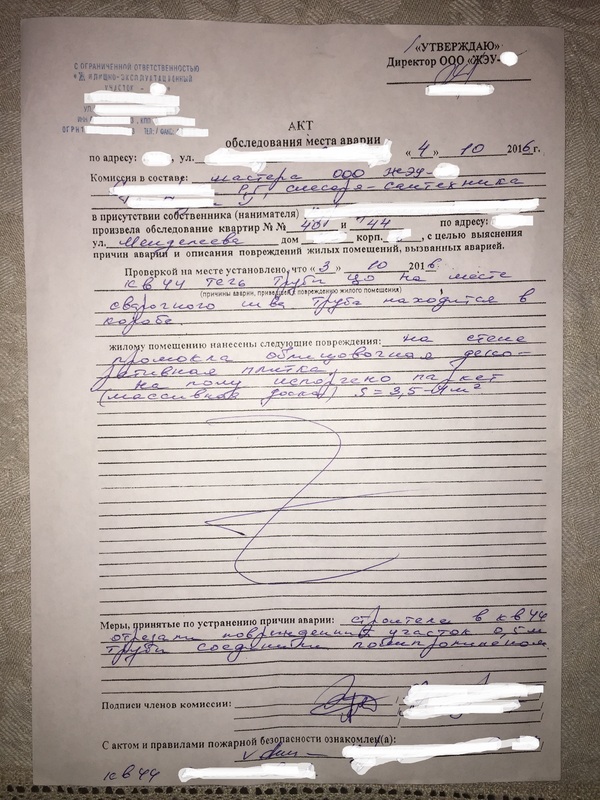 «УТВЕРЖДАЮ»
Директор ООО «ЖЭУ-
С ОГРАНИЧЕННОЙ ОТВЕТСТВЕННОСТЬЮ
ЖИЛИЩНО-ЭКСПЛУАТАЦИОННЫЙ
УЧАСТОК -
УЛ.
КПП
ОГРН 1 ТЕЛ / ФАКС
АКТ
обследования места аварии
по адресу: , ул. « 4 » 10 2016 г.
Комиссия в составе: мастера ООО ЖЭУ-
слесаря-сантехника
в присутствии собственника (нанимателя)
произвела обследование квартир № № и 44 по адресу:
ул. Менделеева дом корп. , с целью выяснения
причин аварии и описания повреждений жилых помещений, вызванных аварией.
Проверкой на месте установлено, что « 3 » 10 2016
кв 44 течь трубы ЦО на месте
(причины аварии, приведшей к повреждению жилого помещения)
сварочного шва труба находится в
коробе
жилому помещению нанесены следующие повреждения: на стене
промокла облицовочная деко-
ративная плитка
на полу испорчено паркет
(массивная доска) S=3,5-4м²
Меры, принятые по устранению причин аварии: строители в кв 44
отрезали поврежденный участок 0,5м
трубы соединили полипропиленом.
Подписи членов комиссии:
С актом и правилами пожарной безопасности ознакомлен(а):
кв 44